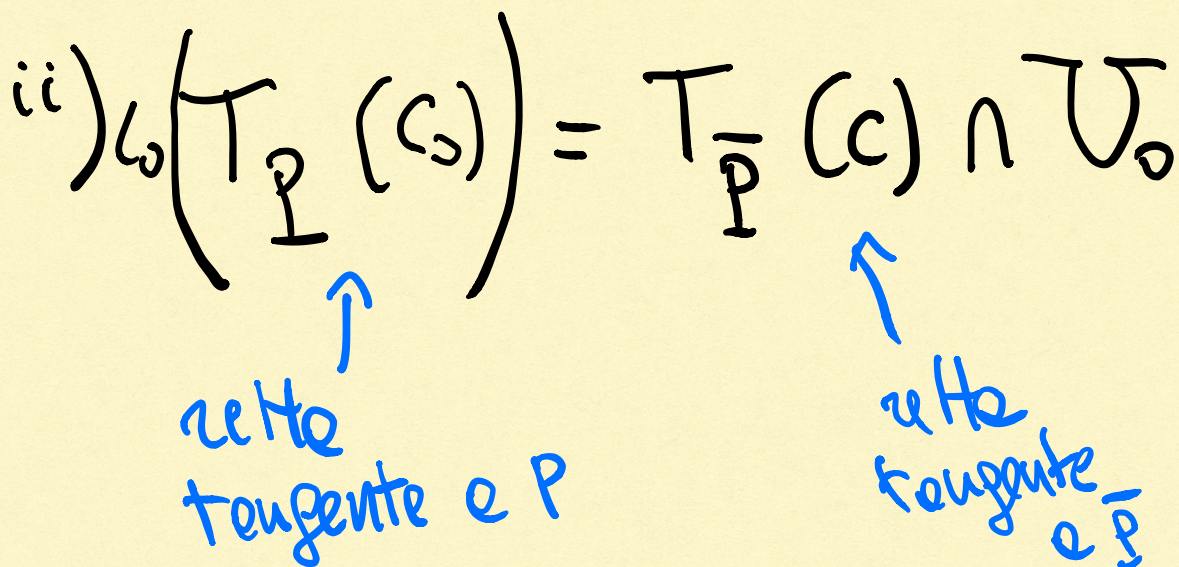 ii) i₀(T_P(C₀)) = T_P̄(C) ∩ U₀
retta
tangente a P
retta
tangente
a P̄